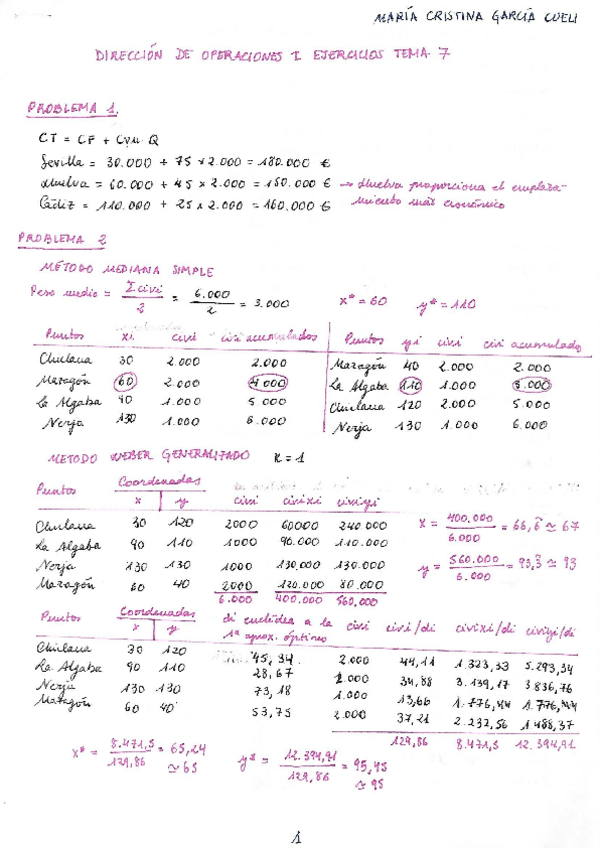 MARÍA CRISTINA GARCÍA COELI
DIRECCIÓN DE OPERACIONES I EJERCICIOS TEMA 7
PROBLEMA 1.
CT = CF + CVu · Q
Sevilla = 30.000 + 75 x 2.000 = 180.000 €
Huelva = 60.000 + 45 x 2.000 = 150.000 € → Huelva proporciona el emplaza-
Cádiz = 110.000 + 25 x 2.000 = 160.000 € miento más económico
PROBLEMA 2
MÉTODO MEDIANA SIMPLE
Peso medio = Σ civi / 2 = 6.000 / 2 = 3.000 x* = 60 y* = 110
Puntos xi civi civi acumulados Puntos yi civi civi acumulado
Chiclana 30 2.000 2.000 Mazagón 40 2.000 2.000
Mazagón 60 2.000 4.000 La Algaba 110 1.000 3.000
La Algaba 90 1.000 5.000 Chiclana 120 2.000 5.000
Nerja 130 1.000 6.000 Nerja 130 1.000 6.000
METODO WEBER GENERALIZADO K = 1
Puntos Coordenadas civi civixi civiyi
x y
Chiclana 30 120 2000 60000 240.000 x = 400.000 / 6.000 = 66,6 ≃ 67
La Algaba 90 110 1000 90.000 110.000
Nerja 130 130 1000 130.000 130.000 y = 560.000 / 6.000 = 93,3 ≃ 93
Mazagón 60 40 2000 120.000 80.000
6.000 400.000 560,000
Puntos Coordenadas di euclídea a la civi civi/di civixi/di civiyi/di
x y 1ª aprox. óptimo
Chiclana 30 120 45,34 2.000 44,11 1.323,33 5.293,34
La Algaba 90 110 28,67 1.000 34,88 3.139,17 3836,76
Nerja 130 130 73,18 1.000 13,66 1.776,44 1.776,44
Mazagón 60 40 53,75 2.000 37,21 2.232,56 1488,37
129,86 8.471,5 12.394,91
x* = 8.471,5 / 129,86 = 65,24 ≃ 65 y* = 12.394,91 / 129,86 = 95,45 ≃ 95
1